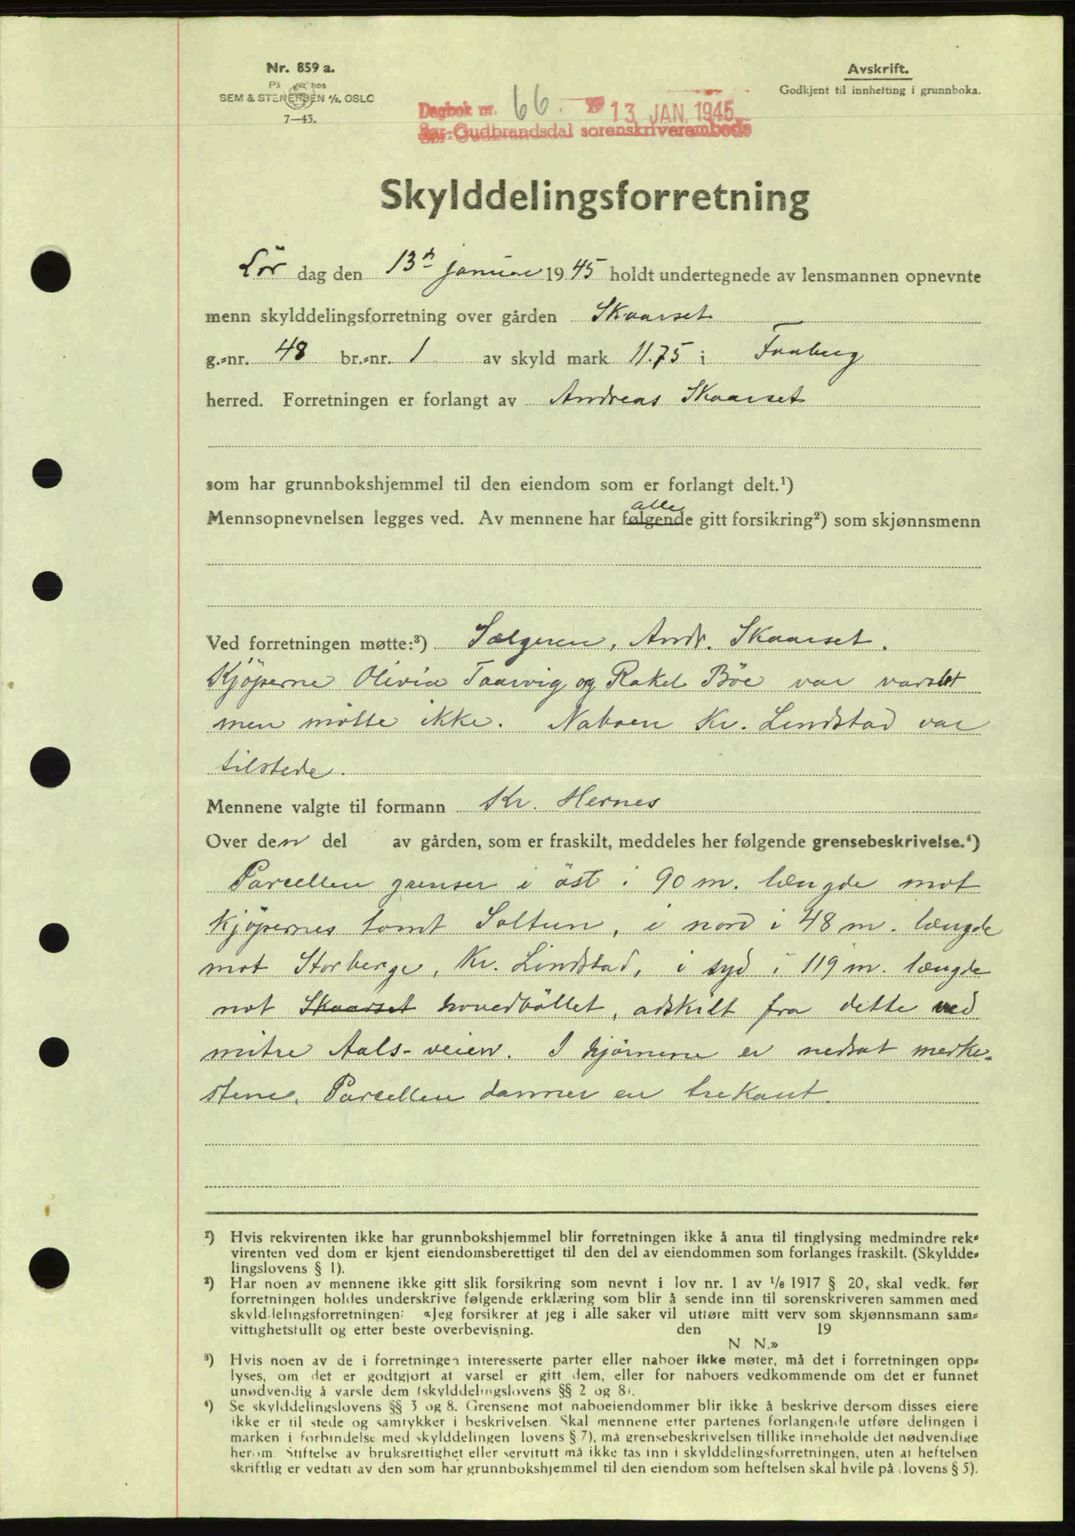 Nr. 859 a.
På lager hos
SEM & STENERSEN A/S, OSLO
7—43.
Avskrift.
Godkjent til innhefting i grunnboka.
Dagbok nr. 66. 13 JAN. 1945
Sør-Gudbrandsdal sorenskriverembede
Skylddelingsforretning
Lör dag den 13de januar 1945 holdt undertegnede av lensmannen opnevnte
menn skylddelingsforretning over gården Skaarset
g.-nr. 48 br.-nr. 1 av skyld mark 11.75 i Faaberg
herred. Forretningen er forlangt av Andreas Skaarset
som har grunnbokshjemmel til den eiendom som er forlangt delt.¹)
alle
Mennsopnevnelsen legges ved. Av mennene har følgende gitt forsikring²) som skjønnsmenn
Ved forretningen møtte:³) Sælgeren, Andr. Skaarset.
Kjöperne Olivia Taarvig og Rakel Böe var varslet
men mötte ikke. Naboen Kr. Lindstad var
tilstede.
Mennene valgte til formann Kr. Hernes
Over den del av gården, som er fraskilt, meddeles her følgende grensebeskrivelse.⁴)
Parcellen grenser i öst i 90 m. længde mot
kjöpernes tomt Soltun, i nord i 48 m. længde
mot Storberge, Kr. Lindstad, i syd i 119 m. længde
mot Skaarset hovedböllet, adskilt fra dette ved
mitre Aals-veien. I hjörnene er nedsat merke-
stene. Parcellen danner en trekant.
¹) Hvis rekvirenten ikke har grunnbokshjemmel blir forretningen ikke å anta til tinglysing medmindre rek-
virenten ved dom er kjent eiendomsberettiget til den del av eiendommen som forlanges fraskilt. (Skyldde-
lingslovens § 1).
²) Har noen av mennene ikke gitt slik forsikring som nevnt i lov nr. 1 av 1/6 1917 § 20, skal vedk. før
forretningen holdes underskrive følgende erklæring som blir å sende inn til sorenskriveren sammen med
skylddelingsforretningen: «Jeg forsikrer at jeg i alle saker vil utføre mitt verv som skjønnsmann sam-
vittighetsfullt og etter beste overbevisning. den 19
N. N.»
³) Hvis noen av de i forretningen interesserte parter eller naboer ikke møter, må det i forretningen opp-
lyses, om det er godtgjort at varsel er gitt dem, eller for naboers vedkommende om det er funnet
unødvendig å varsle dem (skylddelingslovens §§ 2 og 8).
⁴) Se skylddelingslovens §§ 3 og 8. Grensene mot naboeiendommer blir ikke å beskrive dersom disses eiere
ikke er til stede og samtykker i beskrivelsen. Skal mennene etter partenes forlangende utføre delingen i
marken i forbindelse med skylddelingen (lovens § 7), må grensebeskrivelsen tillike inneholde det nødvendige
herom. Stiftelse av bruksrettighet eller servitutt må ikke tas inn i skylddelingsforretningen, uten at heftelsen
skriftlig er vedtatt av den som har grunnbokshjemmel til den eiendom som heftelsen skal hvile på (lovens § 5).